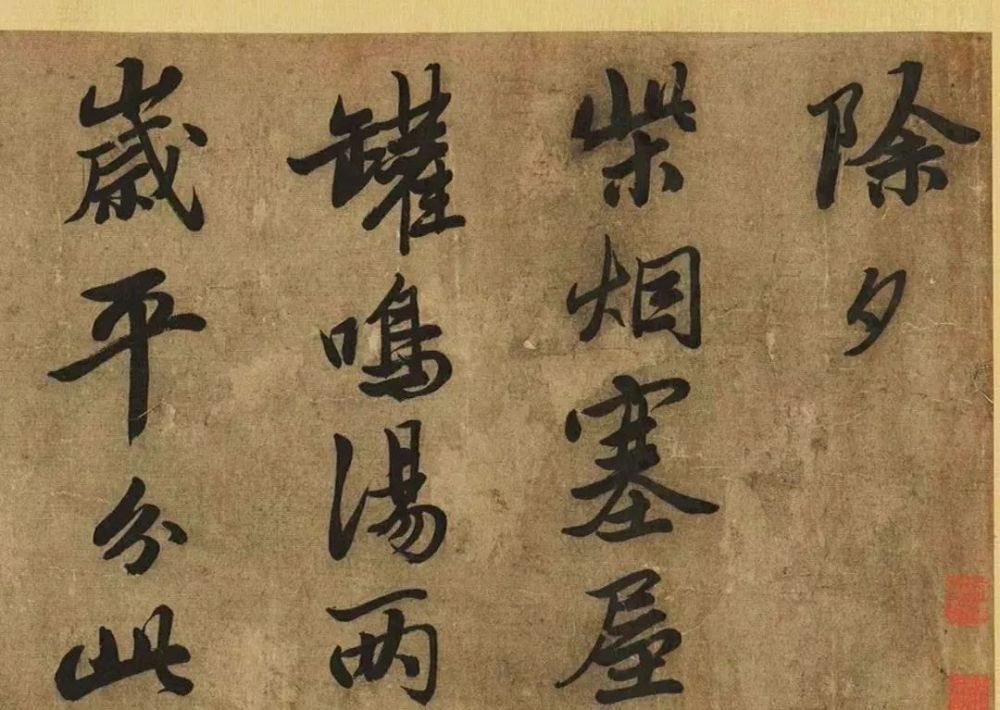 除夕
柴烟塞屋
罐鳴湯両
歳平分此